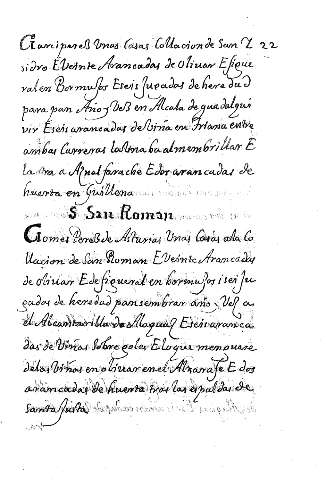 Garci pereß Unas Casas Collacion de San Y 22
sidro E Veinte Arancadas de Olivar E figue
ral en Bormujos E seis Jugadas de heredad
para pan Año y Veß en Alcala de guadalqui
vir E seis arancadas de viña en Triana entre
ambas Carreras la Una ba al membrillar E
la otra a Aznalfarache E dos arancadas de
huerta en Guillena
S San Roman
Gomes Pereß de Asturias Unas Casas a la Co
llacion de San Roman E Veinte Arancadas
de olivar E de figueral en bormujos i seis ju
gadas de heredad pan sembrar año y Veß a
el Alcantarilla de Magued E seis aranca
das de Viñas sobre goles E lo que menouare
de las Viñas en olivar en el Alxarafe E dos
arancadas de huerta tras las espaldas de
Santa Justa